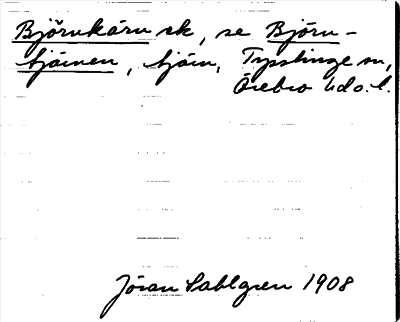 Björnkärn sk, se Björn-
tjärnen, tjärn, Tysslinge sn,
Örebro hd o. l.
Jöran Sahlgren 1908